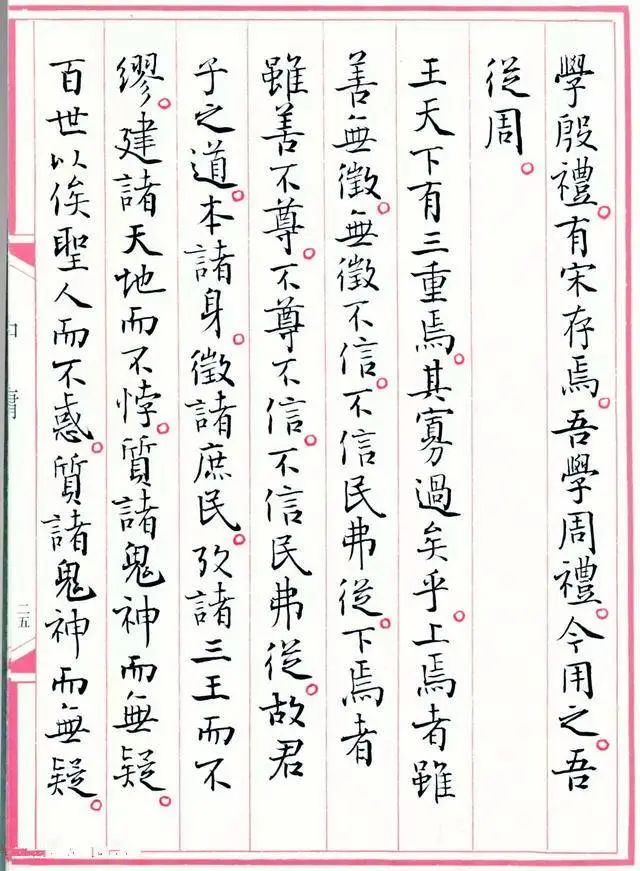 學殷禮。有宋存焉。吾學周禮。今用之。吾
從周。
王天下有三重焉。其寡過矣乎。上焉者雖
善無徵。無徵不信。不信民弗從。下焉者
雖善不尊。不尊不信。不信民弗從。故君
子之道。本諸身。徵諸庶民。攷諸三王而不
繆。建諸天地而不悖。質諸鬼神而無疑。
百世以俟聖人而不惑。質諸鬼神而無疑。
二五